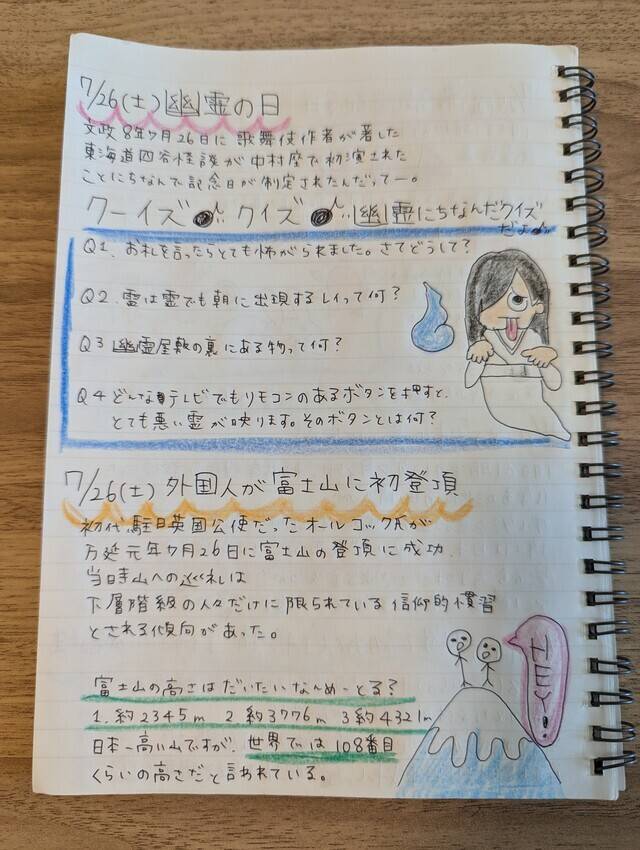 7/26(土)幽霊の日
文政8年7月26日に歌舞伎作者が著した
東海道四谷怪談が中村座で初演された
ことにちなんで記念日が制定されたんだってー。
クーイズ♪クイズ♪幽霊にちなんだクイズ
だよ♪
Q1. お礼を言ったらとても怖がられました。さてどうして?
Q2. 霊は霊でも朝に出現するレイって何?
Q3 幽霊屋敷の裏にある物って何?
Q4 どんなテレビでもリモコンのあるボタンを押すと、
とても悪い霊が映ります。そのボタンとは何?
7/26(土) 外国人が富士山に初登頂
初代駐日英国公使だったオールコック氏が
万延元年7月26日に富士山の登頂に成功
当時山への巡礼は
下層階級の人々だけに限られている信仰的慣習
とされる傾向があった。
HEY!
富士山の高さはだいたいなんめーとる?
1. 約2345m 2 約3776m 3 約4321m
日本一高い山ですが、世界では108番目
くらいの高さだと言われている。